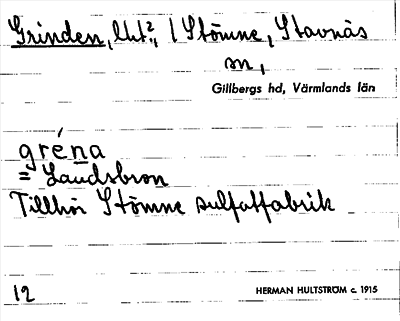 Grinden, Utt², / Stömne, Stavnäs
sn,
Gillbergs hd, Värmlands län
gréna
= Laudsbron
Tillhör Stömne sulfatfabrik
12
HERMAN HULTSTRÖM c. 1915